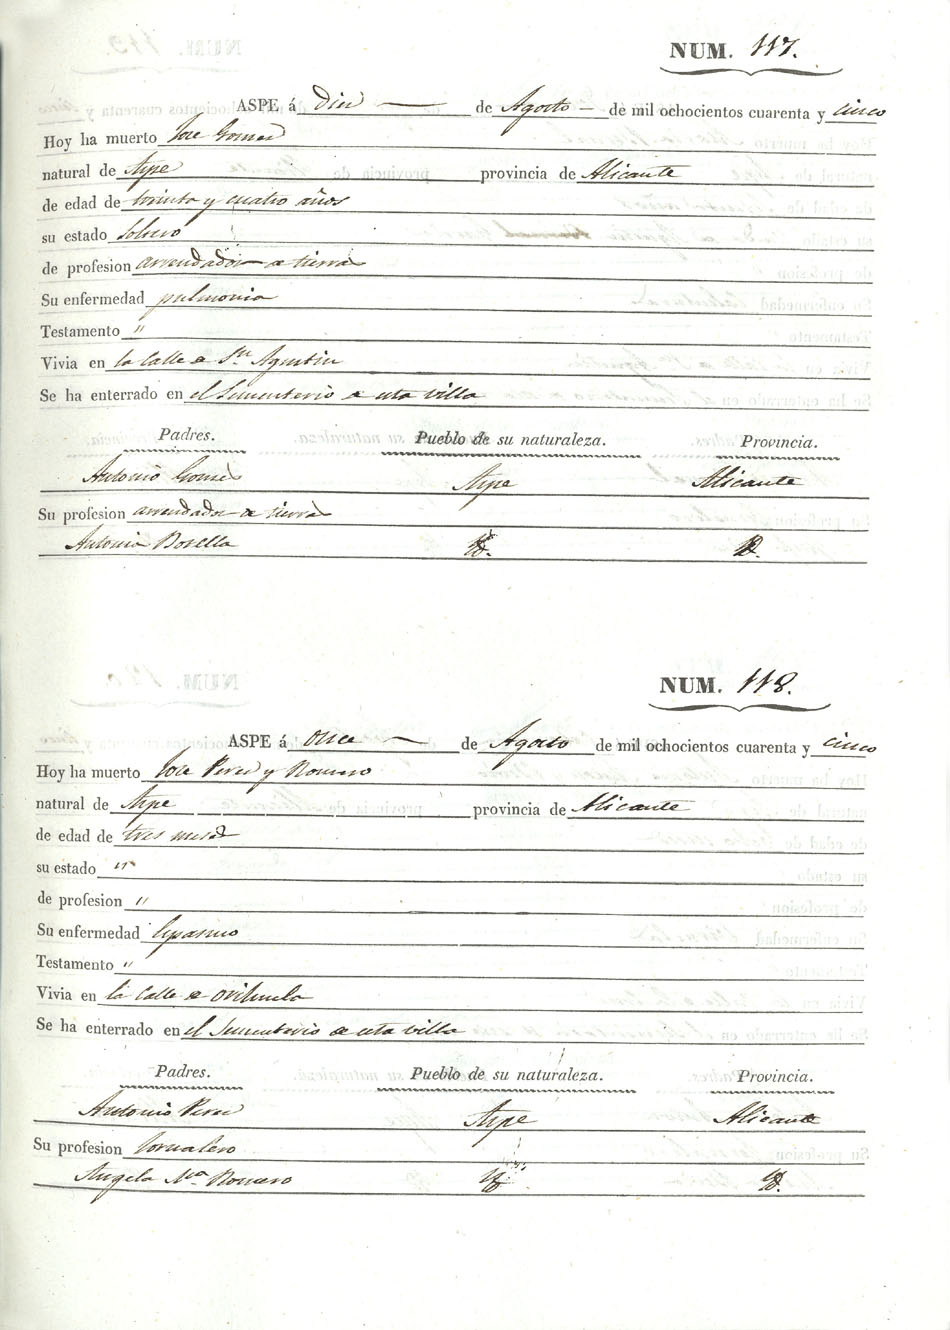 NUM. 117.
ASPE á Diez de Agosto de mil ochocientos cuarenta y cinco
Hoy ha muerto Jose Gomez
natural de Aspe provincia de Alicante
de edad de treinta y cuatro años
su estado soltero
de profesion arrendador de tierras
Su enfermedad pulmonia
Testamento "
Vivia en la Calle de Sn Agustin
Se ha enterrado en el Sementerio de esta villa
Padres. Pueblo de su naturaleza. Provincia.
Antonio Gomez Aspe Alicante
Su profesion arrendador de tierras
Antonia Botella Id. Id.
NUM. 118.
ASPE á once de Agosto de mil ochocientos cuarenta y cinco
Hoy ha muerto Jose Perez y Romero
natural de Aspe provincia de Alicante
de edad de tres meses
su estado "
de profesion "
Su enfermedad Espasmo
Testamento "
Vivia en la Calle de Orihuela
Se ha enterrado en el Sementerio de esta villa
Padres. Pueblo de su naturaleza. Provincia.
Antonio Perez Aspe Alicante
Su profesion Jornalero
Angela Ma Romero Id. Id.